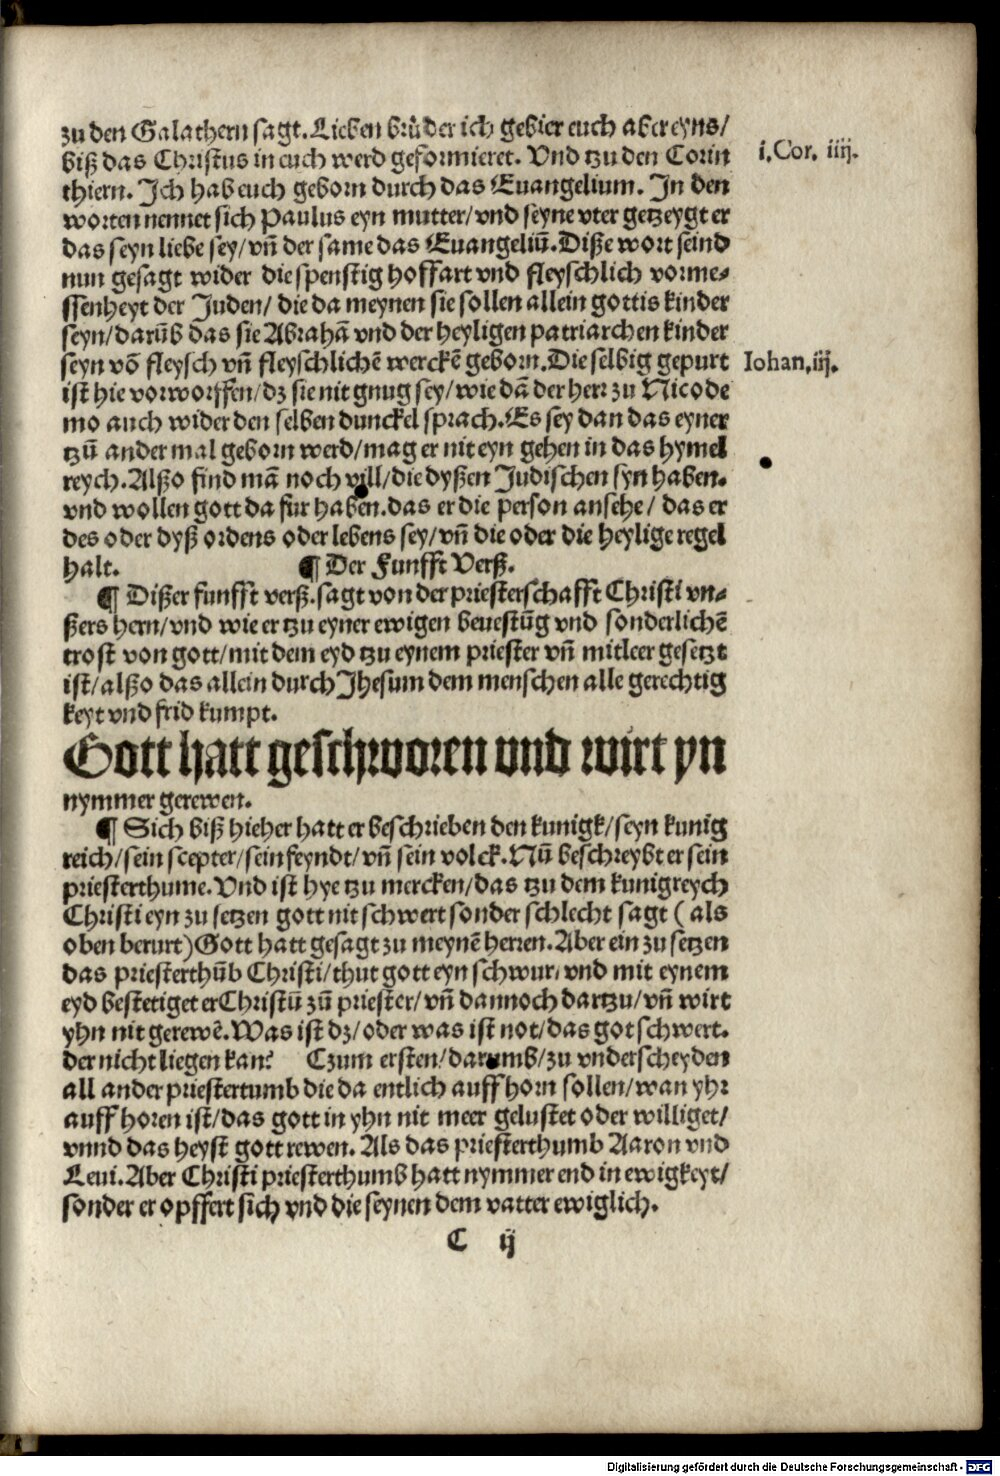 zu den Galathern sagt. Lieben brüder ich gebier euch aber eyns/
biß das Christus in euch werd geformieret. Vnd tzu den Corin
i. Cor. iiij.
thiern. Ich hab euch geborn durch das Euangelium. In den
worten nennet sich Paulus eyn mutter/ vnd seyne vter getzeygt er
das seyn liebe sey/ vn̄ der same das Euangeliū. Diße wort seind
nun gesagt wider die spenstig hoffart vnd fleyschlich vorme-
ssenheyt der Juden/ die da meynen sie sollen allein gottis kinder
seyn/ darūb das sie Abrahā vnd der heyligen patriarchen kinder
seyn vō fleysch vn̄ fleyschlichē werckē geborn. Die selbig gepurt
Iohan, iij.
ist hie vorworffen/ dz sie nit gnug sey/ wie dā der herr zu Nicode
mo auch wider den selben dunckel sprach. Es sey dan das eyner
tzū ander mal geborn werd/ mag er nit eyn gehen in das hymel
reych. Alßo find mā noch vill/ die dyßen Judischen syn haben.
vnd wollen gott da fur haben. das er die person ansehe/ das er
des oder dyß ordens oder lebens sey/ vn̄ die oder die heylige regel
halt. ¶ Der Funfft Verß.
¶ Dißer funfft verß. sagt von der priesterschafft Christi vn-
ßers hern/ vnd wie er tzu eyner ewigen beuestūg vnd sonderlichē
trost von gott/ mit dem eyd tzu eynem priester vn̄ mitleer gesetzt
ist/ alßo das allein durch Jhesum dem menschen alle gerechtig
keyt vnd frid kumpt.
Gott hatt geschworen vnd wirt yn
nymmer gerewen.
¶ Sich biß hieher hatt er beschrieben den kunigk/ seyn kunig
reich/ sein scepter/ sein feyndt/ vn̄ sein volck. Nū beschreybt er sein
priesterthume. Vnd ist hye tzu mercken/ das tzu dem kunigreych
Christi eyn zu setzen gott nit schwert sonder schlecht sagt ( als
oben berurt) Gott hatt gesagt zu meynē herren. Aber ein zu setzen
das priesterthūb Christi/ thut gott eyn schwur/ vnd mit eynem
eyd bestetiget er Christū zū priester/ vn̄ dannoch dartzu/ vn̄ wirt
yhn nit gerewē. Was ist dz/ oder was ist not/ das got schwert.
der nicht liegen kan? Czum ersten/ darumb/ zu vnderscheyden
all ander priestertumb die da entlich auff horn sollen/ wan yhr
auff horen ist/ das gott in yhn nit meer gelustet oder williget/
vnnd das heyst gott rewen. Als das priesterthumb Aaron vnd
Leui. Aber Christi priesterthumb hatt nymmer end in ewigkeyt/
sonder er opffert sich vnd die seynen dem vatter ewiglich.
C ij
Digitalisierung gefördert durch die Deutsche Forschungsgemeinschaft - DFG